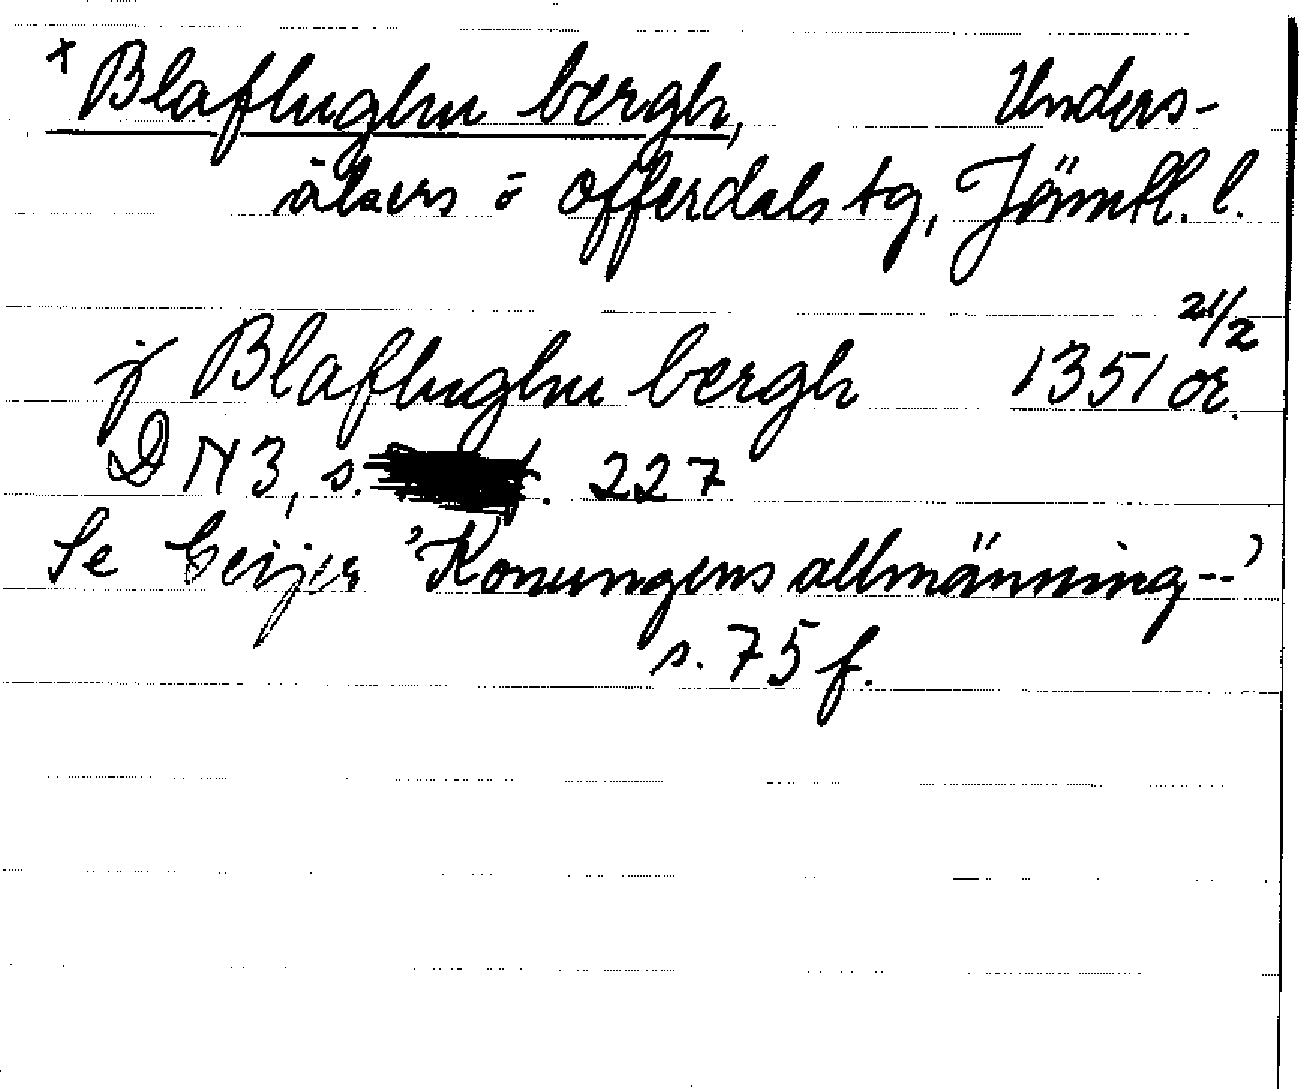 + Blaflughu bergh, Unders-
åkers o Offerdals tg, Jämtl. l.
j Blaflughu bergh 1351 21/2 or.
DN 3, s. 227
Se Geijer 'Konungens allmänning--'
s. 75 f.